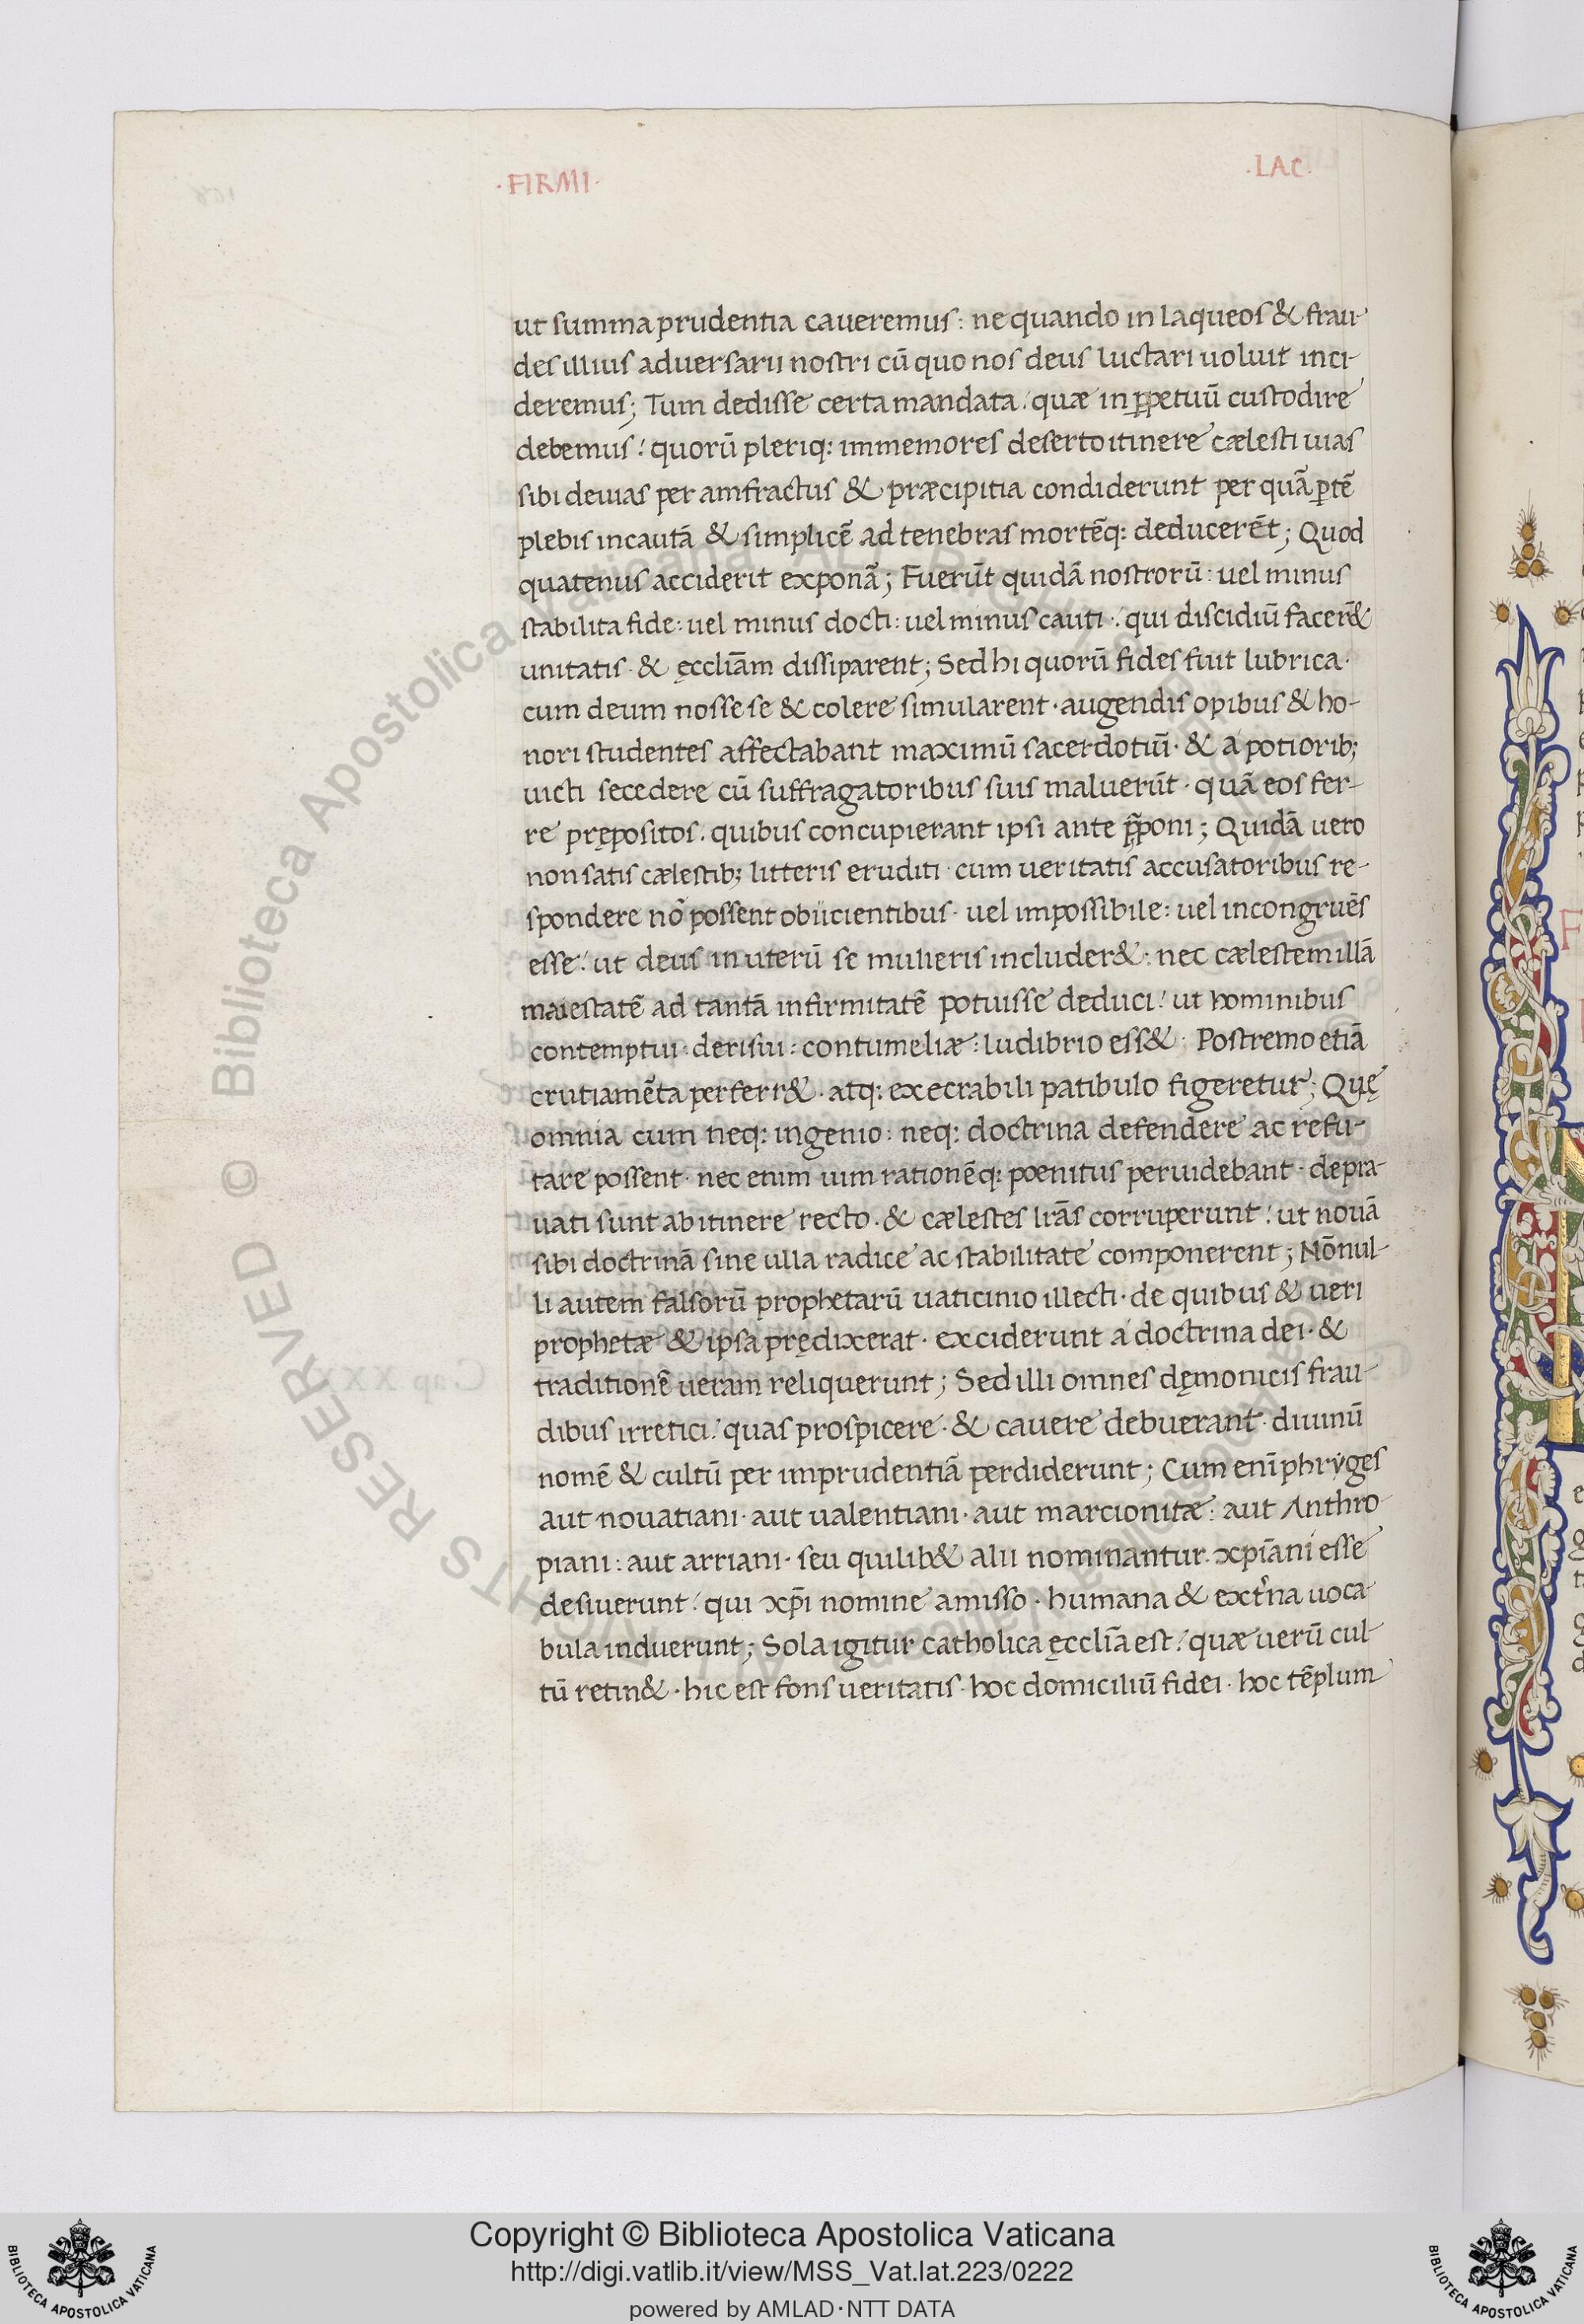 ·FIRMI· ·LAC·
ut summa prudentia caueremus: ne quando in laqueos & frau
des illius aduersarii nostri cū quo nos deus luctari uoluit inci-
deremus; Tum dedisse certa mandata: quæ in ꝑpetuū custodire
debemus: quorū pleriq: immemores deserto itinere cælesti uias
sibi deuias per amfractus & præcipitia condiderunt per quā ꝑtē
plebis incautā & simplicē ad tenebras mortēq: deducerēt; Quod
quatenus acciderit exponā; Fuerūt quidā nostrorū: uel minus
stabilita fide: uel minus docti: uel minus cauti: qui discidiū facer&
unitatis · & ęccliam dissiparent; Sed hi quorū fides fuit lubrica·
cum deum nosse se & colere simularent · augendis opibus & ho-
nori studentes affectabant maximū sacerdotiū · & a potiorib;
uicti secedere cū suffragatoribus suis maluerūt · quā eos fer-
re prępositos. quibus concupierant ipsi ante p̄poni; Quidā uero
non satis cælestib; litteris eruditi · cum ueritatis accusatoribus re-
spondere nō possent obiicientibus · uel impossibile: uel incongruēs
esse: ut deus in uterū se mulieris includer&: nec cælestem illā
maiestatē ad tantā infirmitatē potuisse deduci: ut hominibus
contemptui · derisui: contumeliæ: ludibrio ess& · Postremo etiā
crutiamēta perferr& · atq: execrabili patibulo figeretur; Quę
omnia cum neq: ingenio: neq: doctrina defendere ac refu-
tare possent · nec enim uim rationēq: pœnitus peruidebant · depra-
uati sunt ab itinere recto · & cælestes lrās corruperunt: ut nouā
sibi doctrinā sine ulla radice ac stabilitate componerent; Nōnul-
li autem falsorū prophetarū uaticinio illecti · de quibus & ueri
prophetæ & ipsa prędixerat · exciderunt a doctrina dei · &
traditionē ueram reliquerunt; Sed illi omnes dęmonicis frau-
dibus irretici: quas prospicere · & cauere debuerant · diuinū
nomē & cultū per imprudentiā perdiderunt; Cum enī phryges
aut nouatiani · aut ualentiani · aut marcionitæ: aut Anthro
piani: aut arriani · seu quilib& alii nominantur. xpīani esse
desiuerunt: qui xp̄i nomine amisso · humana & ext̓na uoca-
bula induerunt; Sola igitur catholica ęcclīa est: quæ uerū cul
tū retin& · hic est fons ueritatis · hoc domiciliū fidei · hoc tēplum
Copyright © Biblioteca Apostolica Vaticana
http://digi.vatlib.it/view/MSS_Vat.lat.223/0222
powered by AMLAD·NTT DATA
BIBLIOTECA APOSTOLICA VATICANA
BIBLIOTECA APOSTOLICA VATICANA